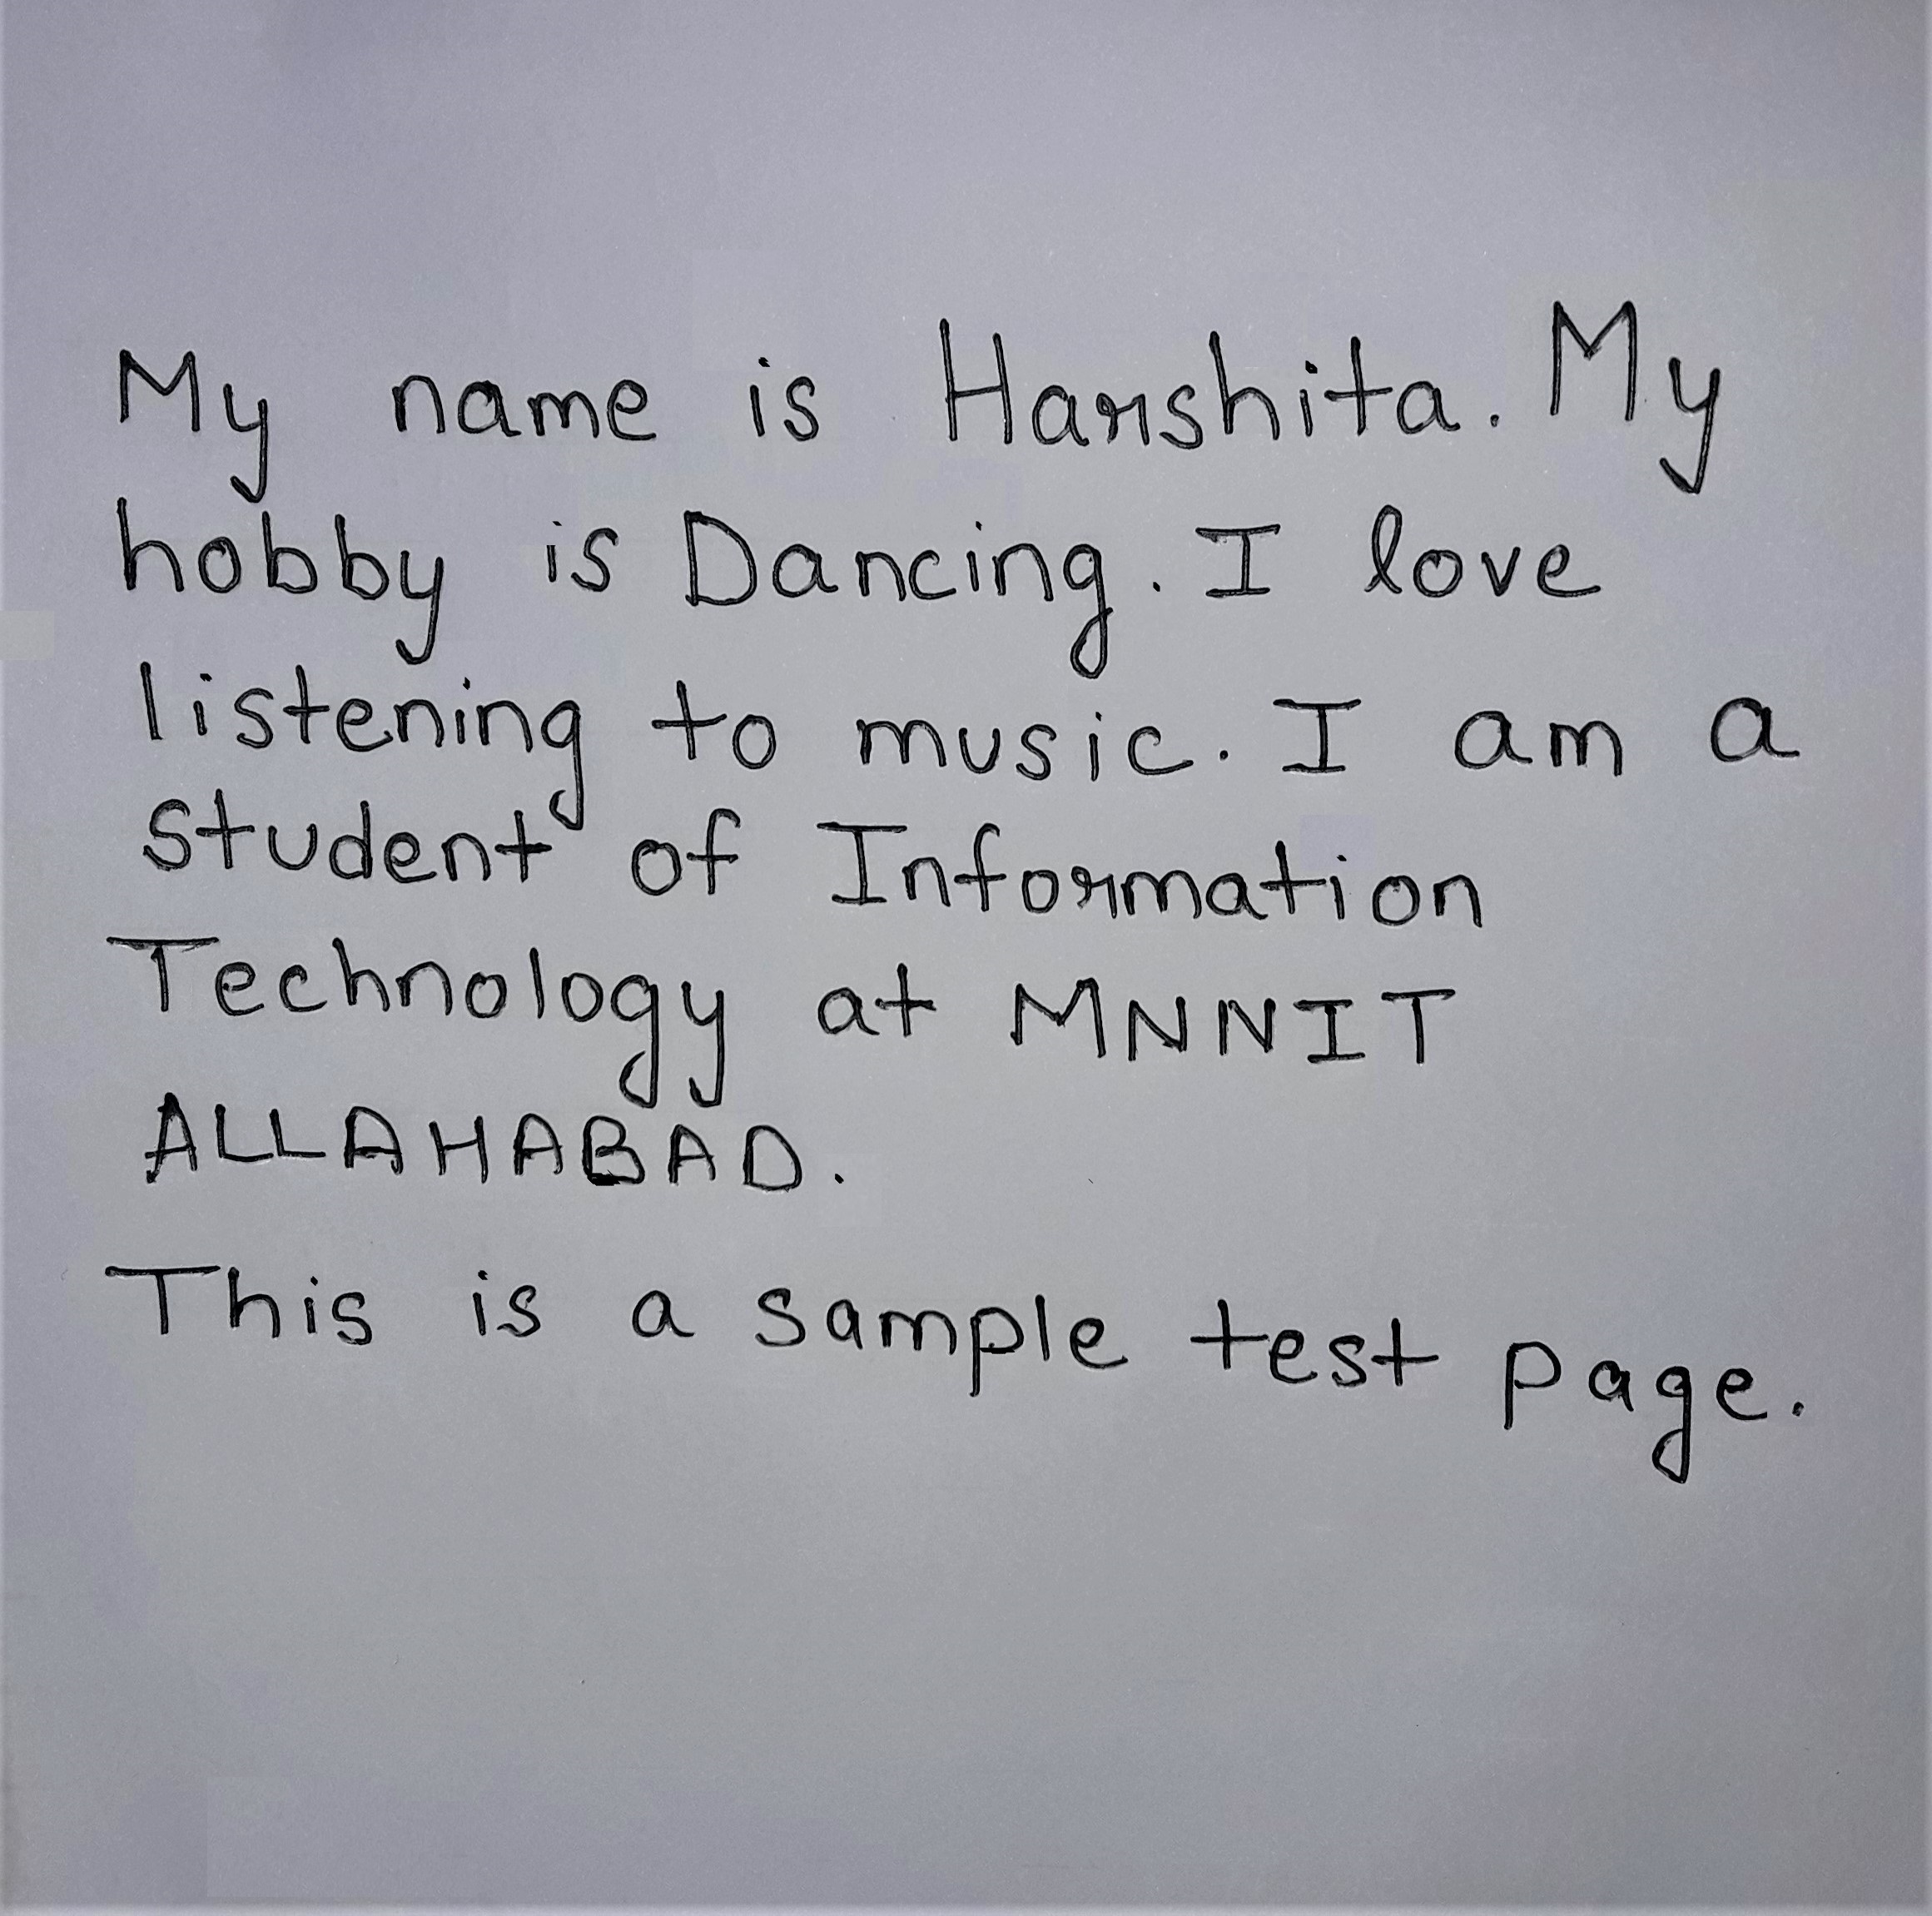 My name is Harshita. My
hobby is Dancing. I love
listening to music. I am a
student of Information
Technology at MNNIT
ALLAHABAD.
This is a sample test page.